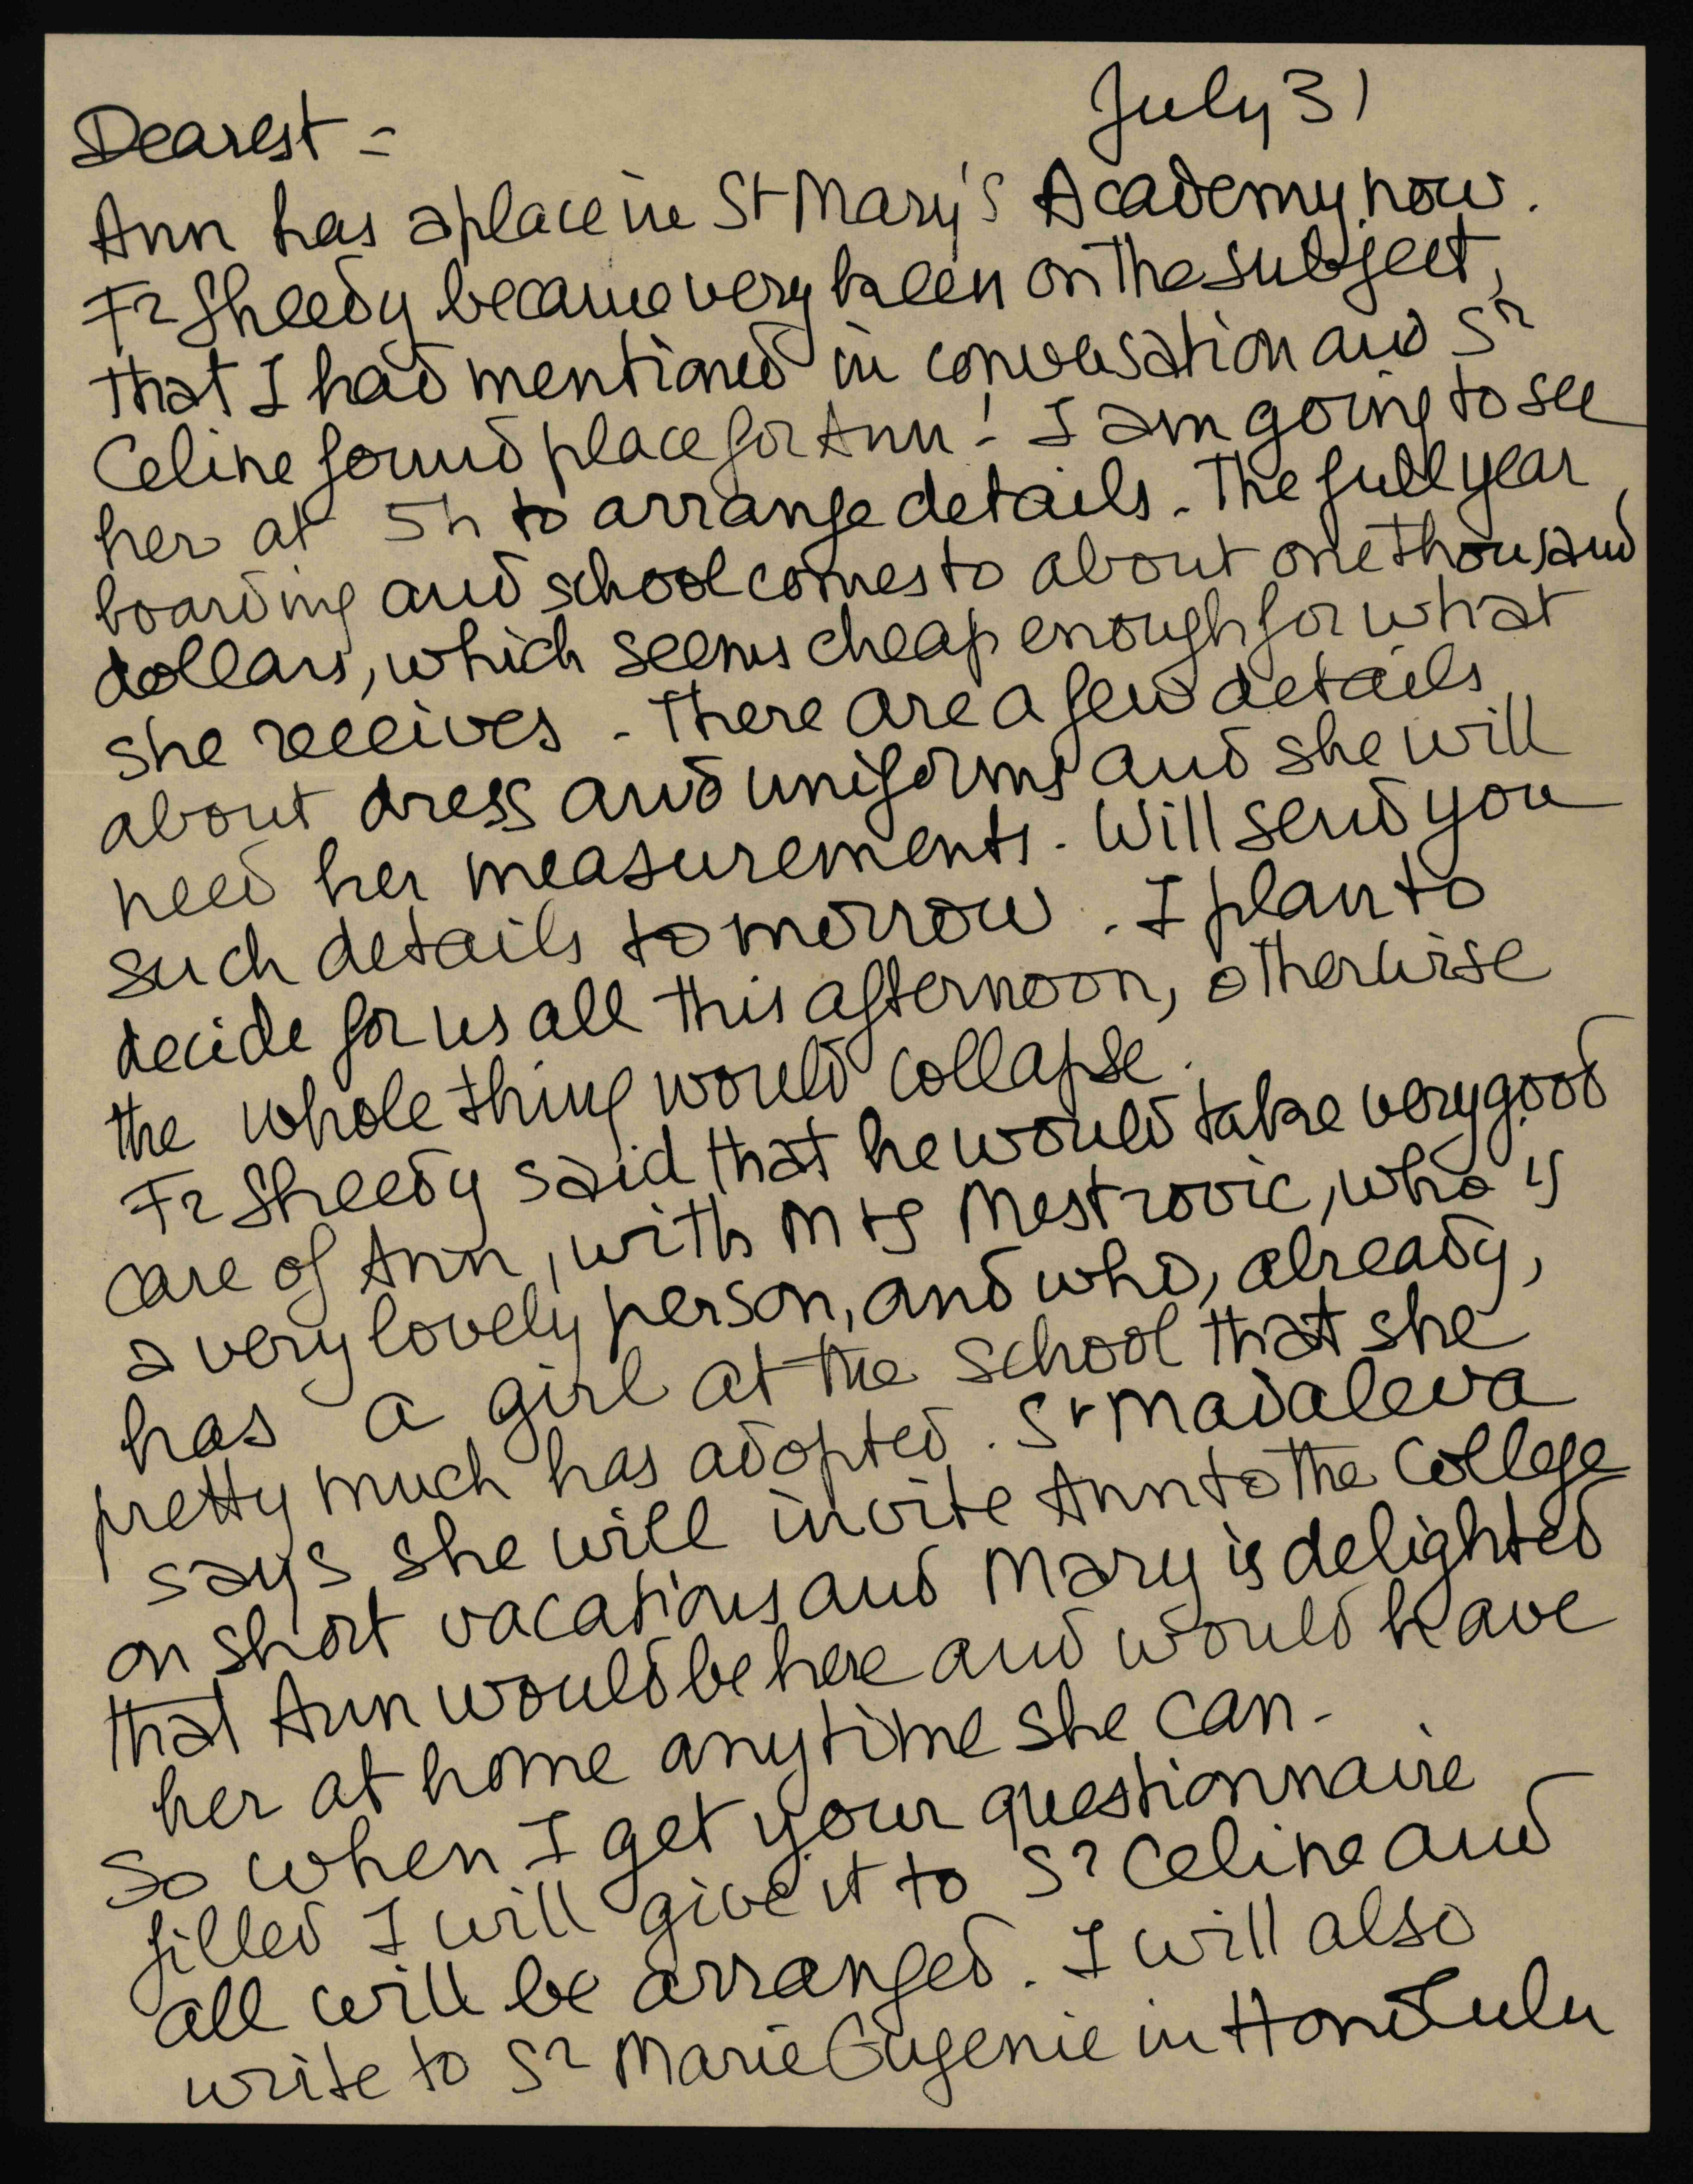 July 31
Dearest =
Ann has a place in St Mary's Academy now.
Fr Sheedy became very keen on the subject,
that I had mentioned in conversation and Sr
Celine found place for Ann! I am going to see
her at 5h to arrange details. The full year,
boarding and school comes to about one thousand
dollars, which seems cheap enough for what
she receives. There are a few details
about dress and uniforms and she will
need her measurements. Will send you
such details tomorrow. I plan to
decide for us all this afternoon, otherwise
the whole thing would collapse.
Fr Sheedy said that he would take very good
care of Ann, with Mrs Mestrovic, who is
a very lovely person, and who, already,
has a girl at the school that she
pretty much has adopted. Sr Madaleva
says she will invite Ann to the College
on short vacations and Mary is delighted
that Ann would be here and would have
her at home anytime she can.
So when I get your questionnaire
filled I will give it to Sr Celine and
all will be arranged. I will also
write to Sr Marie Eugenie in Honolulu